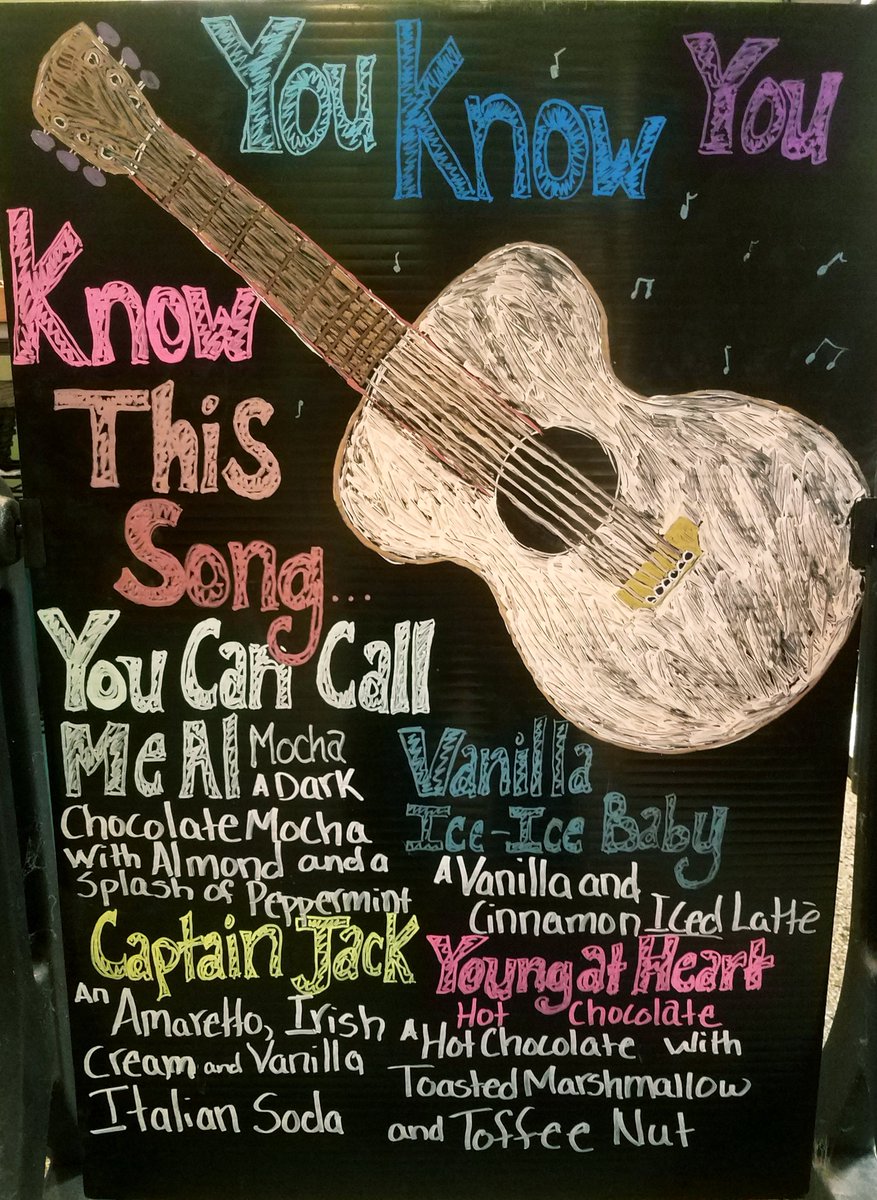 You Know You
Know
This
Song....
You Can Call
Me Al Mocha
A Dark
Chocolate Mocha
With Almond and a
Splash of Peppermint
Vanilla
Ice-Ice Baby
A Vanilla and
Cinnamon Iced Lattè
Captain Jack
An
Amaretto, Irish
Cream and Vanilla
Italian Soda
Young at Heart
Hot Chocolate
A Hot Chocolate with
Toasted Marshmallow
and Toffee Nut